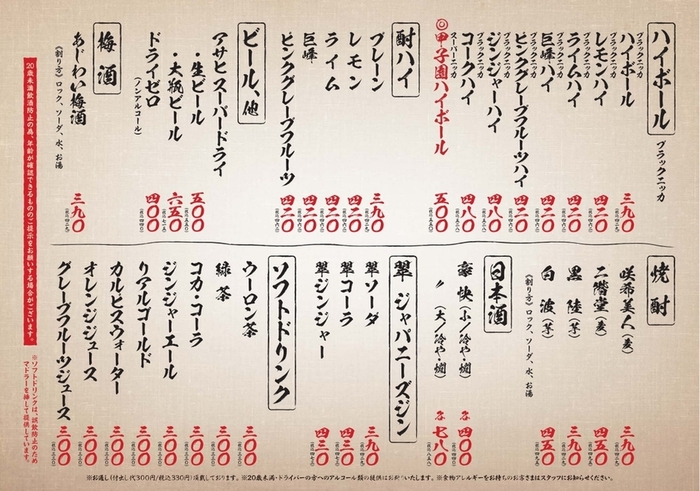 ハイボール
ブラックニッカ
ブラックニッカ
ハイボール
三九〇
ブラックニッカ
レモンハイ
四二〇
ブラックニッカ
ライムハイ
四二〇
ブラックニッカ
巨峰ハイ
四二〇
ブラックニッカ
ピンクグレープフルーツハイ
四二〇
ブラックニッカ
ジンジャーハイ
四八〇
ブラックニッカ
コークハイ
四八〇
スーパーニッカ
◎甲子園ハイボール
五〇〇
酎ハイ
プレーン
三九〇
レモン
四二〇
ライム
四二〇
巨峰
四二〇
ピンクグレープフルーツ
四二〇
ビール、他
アサヒスーパードライ
・生ビール
五〇〇
・大瓶ビール
六五〇
ドライゼロ
(ノンアルコール)
四〇〇
梅酒
あじわい梅酒
三九〇
《割り方》ロック、ソーダ、水、お湯
焼酎
咲希美人(麦)
三九〇
二階堂(麦)
四五〇
黒陸(芋)
三九〇
白波(芋)
四五〇
《割り方》ロック、ソーダ、水、お湯
日本酒
豪快(小/冷や・燗)
各四〇〇
〃(大/冷や・燗)
各七八〇
翠 ジャパニーズジン
翠ソーダ
三九〇
翠コーラ
四三〇
翠ジンジャー
四三〇
ソフトドリンク
ウーロン茶
三〇〇
緑茶
三〇〇
コカ・コーラ
三〇〇
ジンジャーエール
三〇〇
リアルゴールド
三〇〇
カルピスウォーター
三〇〇
オレンジジュース
三〇〇
グレープフルーツジュース
三〇〇
20歳未満飲酒防止の為、年齢が確認できるもののご提示をお願いする場合がございます。
※ソフトドリンクは、誤飲防止のため
マドラーを挿して提供しています。
※お通し(付出し代300円/税込330円)頂戴しております。※20歳未満・ドライバーの方へのアルコール類の提供はお断りいたします。※食物アレルギーをお持ちのお客さまはスタッフにお知らせください。